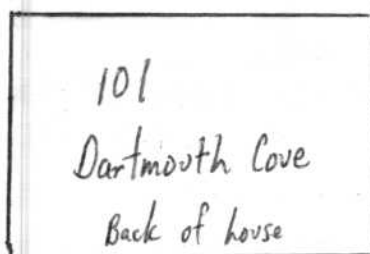 101
Dartmouth Cove
Back of house